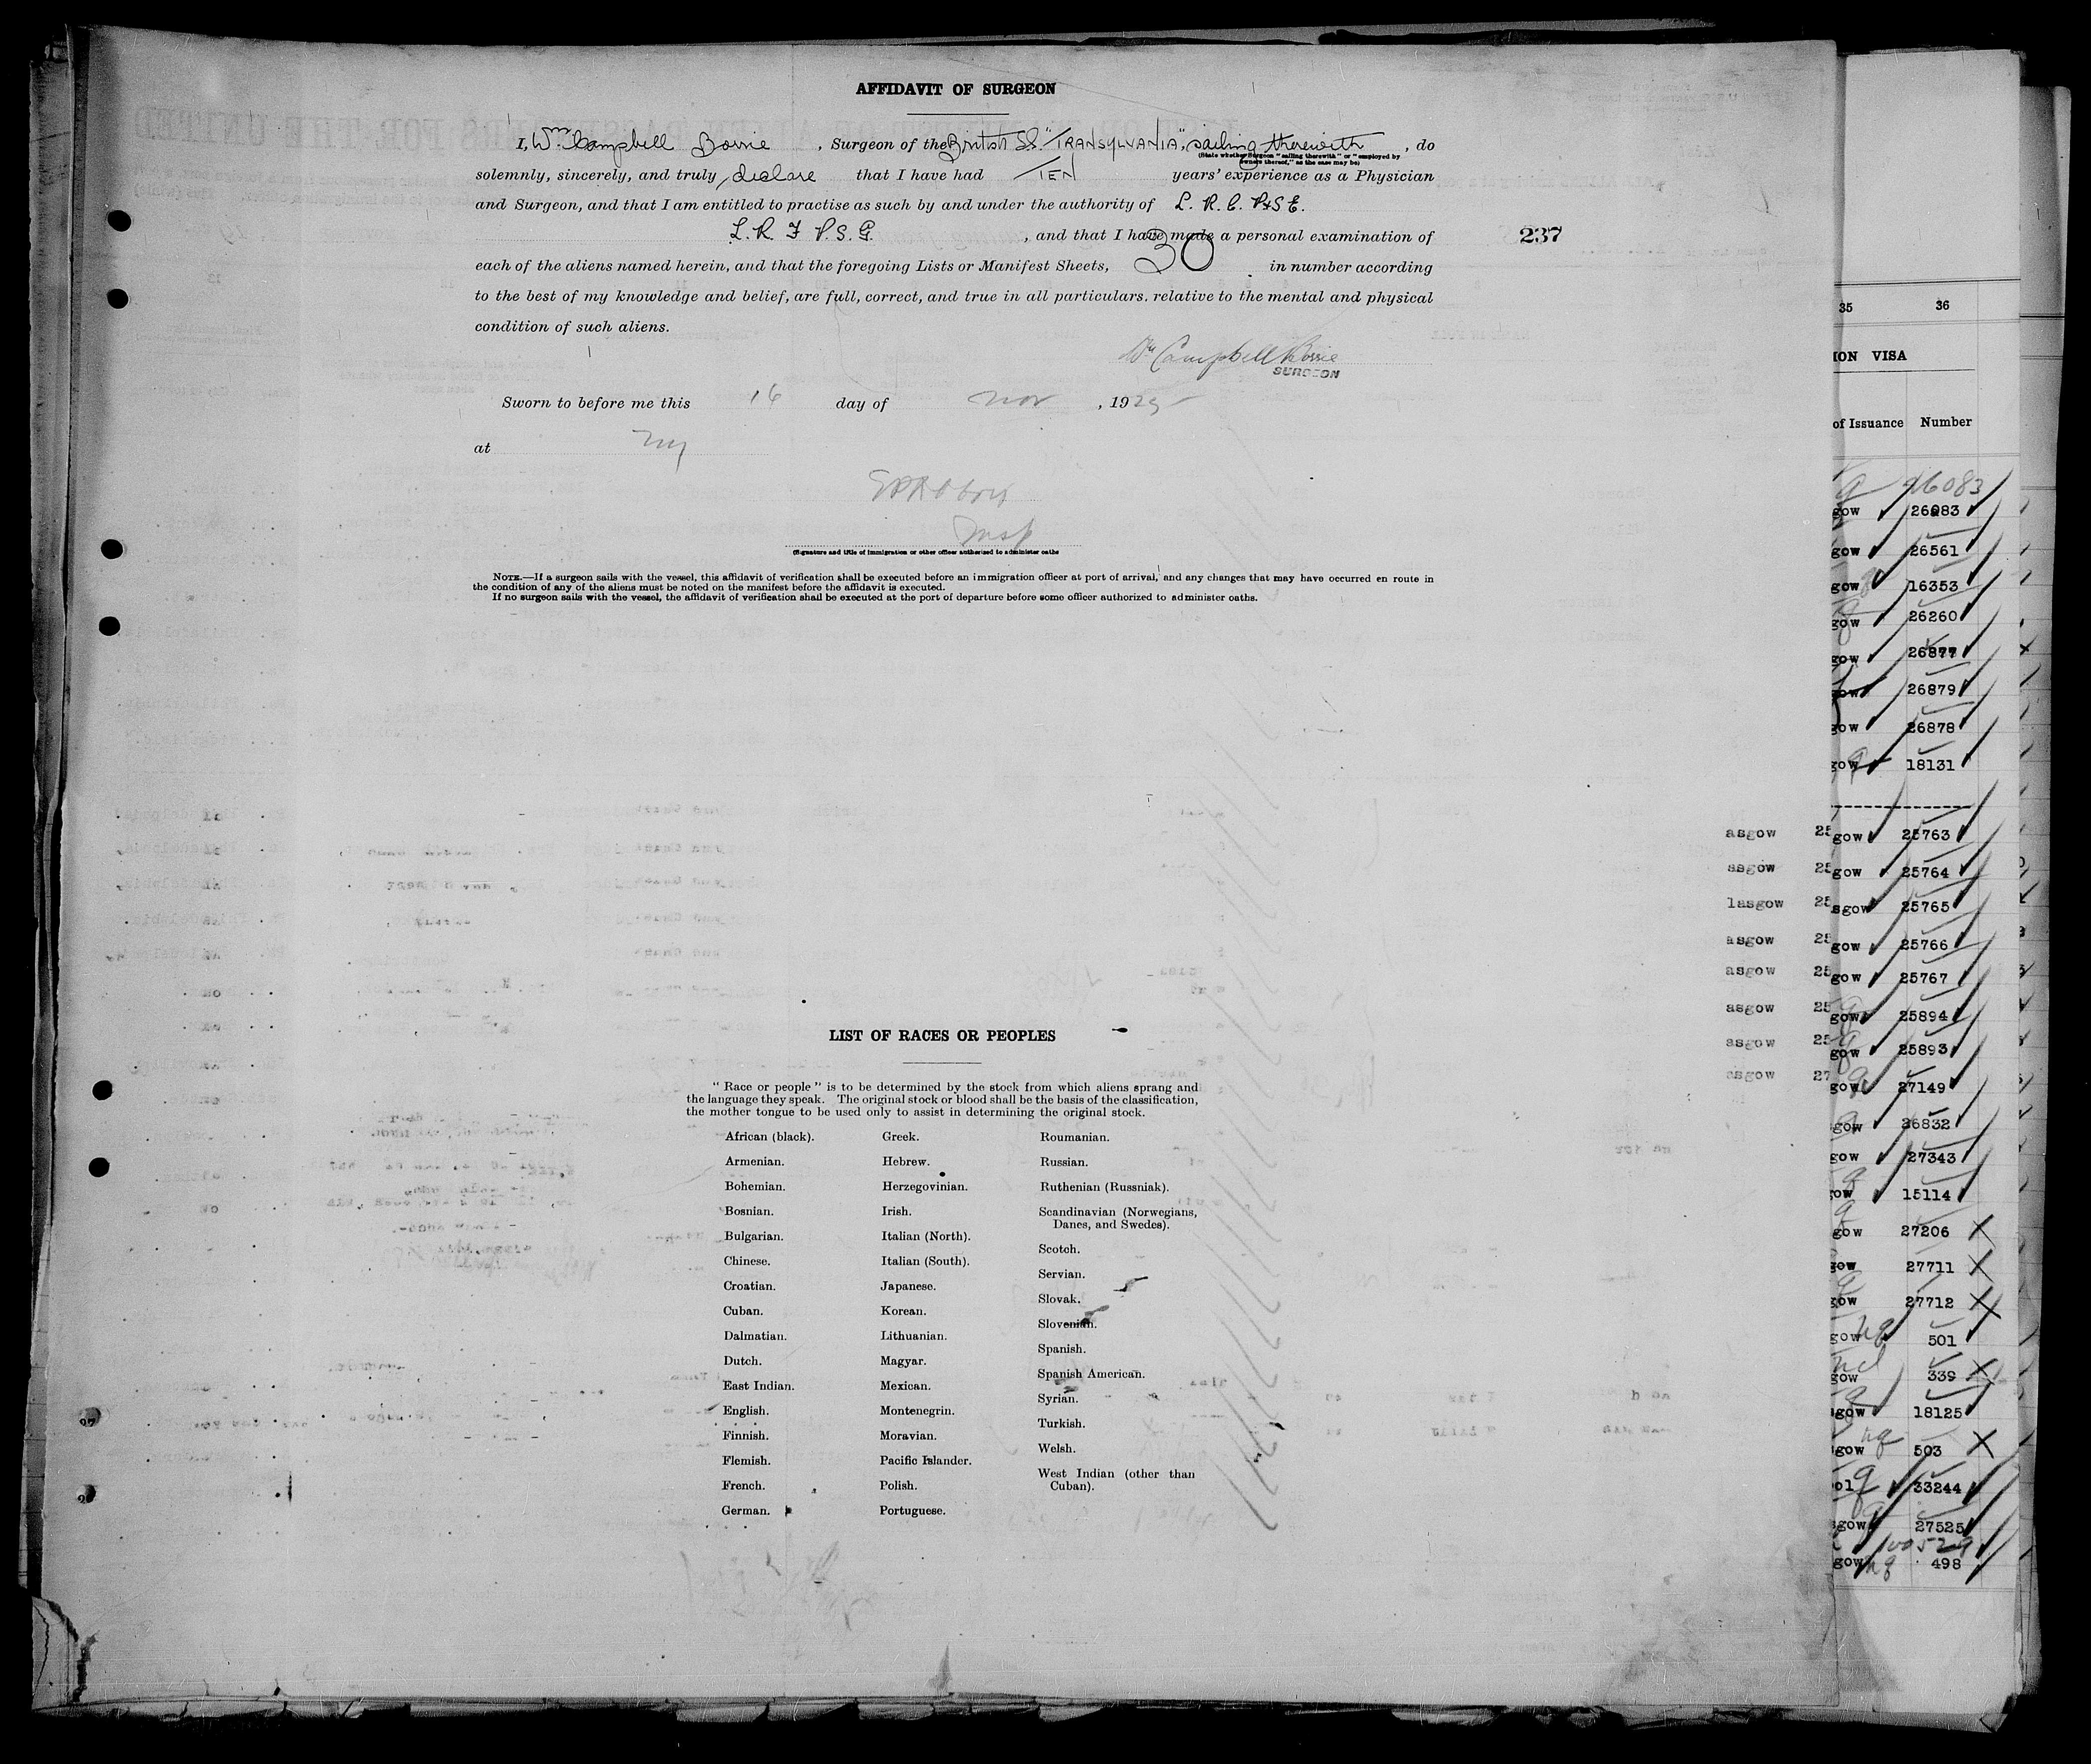 AFFIDAVIT OF SURGEON
I, Wm. Campbell Borrie, Surgeon of the British SS. "TRANSYLVANIA", sailing therewith, do
(State whether Surgeon "sailing therewith" or "employed by
owners thereof," as the case may be)
solemnly, sincerely, and truly declare that I have had TEN years' experience as a Physician
and Surgeon, and that I am entitled to practise as such by and under the authority of L. R. C. P&S E.
L. R. F P. S. G. , and that I have made a personal examination of
237
each of the aliens named herein, and that the foregoing Lists or Manifest Sheets, 30 in number according
to the best of my knowledge and belief, are full, correct, and true in all particulars. relative to the mental and physical
condition of such aliens.
Wm Campbell Borrie
SURGEON
Sworn to before me this 16 day of Nov , 1925
at NY
Insp
(Signature and title of immigration or other officer authorized to administer oaths
NOTE.—If a surgeon sails with the vessel, this affidavit of verification shall be executed before an immigration officer at port of arrival, and any changes that may have occurred en route in
the condition of any of the aliens must be noted on the manifest before the affidavit is executed.
If no surgeon sails with the vessel, the affidavit of verification shall be executed at the port of departure before some officer authorized to administer oaths.
LIST OF RACES OR PEOPLES
"Race or people" is to be determined by the stock from which aliens sprang and
the language they speak. The original stock or blood shall be the basis of the classification,
the mother tongue to be used only to assist in determining the original stock.
African (black).
Armenian.
Bohemian.
Bosnian.
Bulgarian.
Chinese.
Croatian.
Cuban.
Dalmatian.
Dutch.
East Indian.
English.
Finnish.
Flemish.
French.
German.
Greek.
Hebrew.
Herzegovinian.
Irish.
Italian (North).
Italian (South).
Japanese.
Korean.
Lithuanian.
Magyar.
Mexican.
Montenegrin.
Moravian.
Pacific Islander.
Polish.
Portuguese.
Roumanian.
Russian.
Ruthenian (Russniak).
Scandinavian (Norwegians,
Danes, and Swedes).
Scotch.
Servian.
Slovak.
Slovenian.
Spanish.
Spanish American.
Syrian.
Turkish.
Welsh.
West Indian (other than
Cuban).
asgow 25
asgow 25
lasgow 25
asgow 25
asgow 25
asgow 25
asgow 25
asgow 27
35 36
ION VISA
of Issuance Number
26083
gow 26083
gow 26561
gow 16353
gow 26260
gow 26877
gow 26879
gow 26878
gow 18131
gow 25763
gow 25764
sgow 25765
gow 25766
gow 25767
gow 25894
gow 25893
gow 27149
gow 26832
gow 27343
ow 15114
gow 27206
gow 27711
gow 27712
gow nq 501
gow 339
gow 18125
gow nq 503
ol q 33244
sgow 27525
gow nq 498